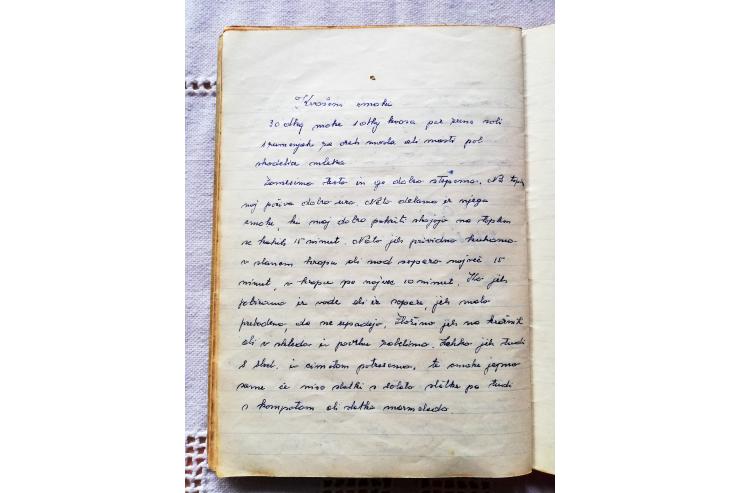 Kvašeni cmoki
30 dkg moke 1 dkg kvasa par zrna soli
1 rumenjak za oreh masla ali masti pol
skodelice mleka
Zamesimo testo in ga dobro stepemo. Na toplem
naj počiva dobro uro. Nato delamo iz njega
cmoke, ki naj dobro pokriti shajajo na toplem
še kakih 15 minut. Nato jih previdno kuhamo
v slanem kropu ali nad soparo največ 15
minut, v kropu pa največ 10 minut. Ko jih
pobiramo iz vode ali iz sopare, jih malo
prebodemo, da ne upadejo. Zložimo jih na krožnik
ali v skledo in povrhu zabelimo. Lahko jih tudi
s slad. in cimetom potresemo, te cmoke jejmo
same če niso sladki s solato sladke pa tudi
s kompotom ali sladko marmelado.